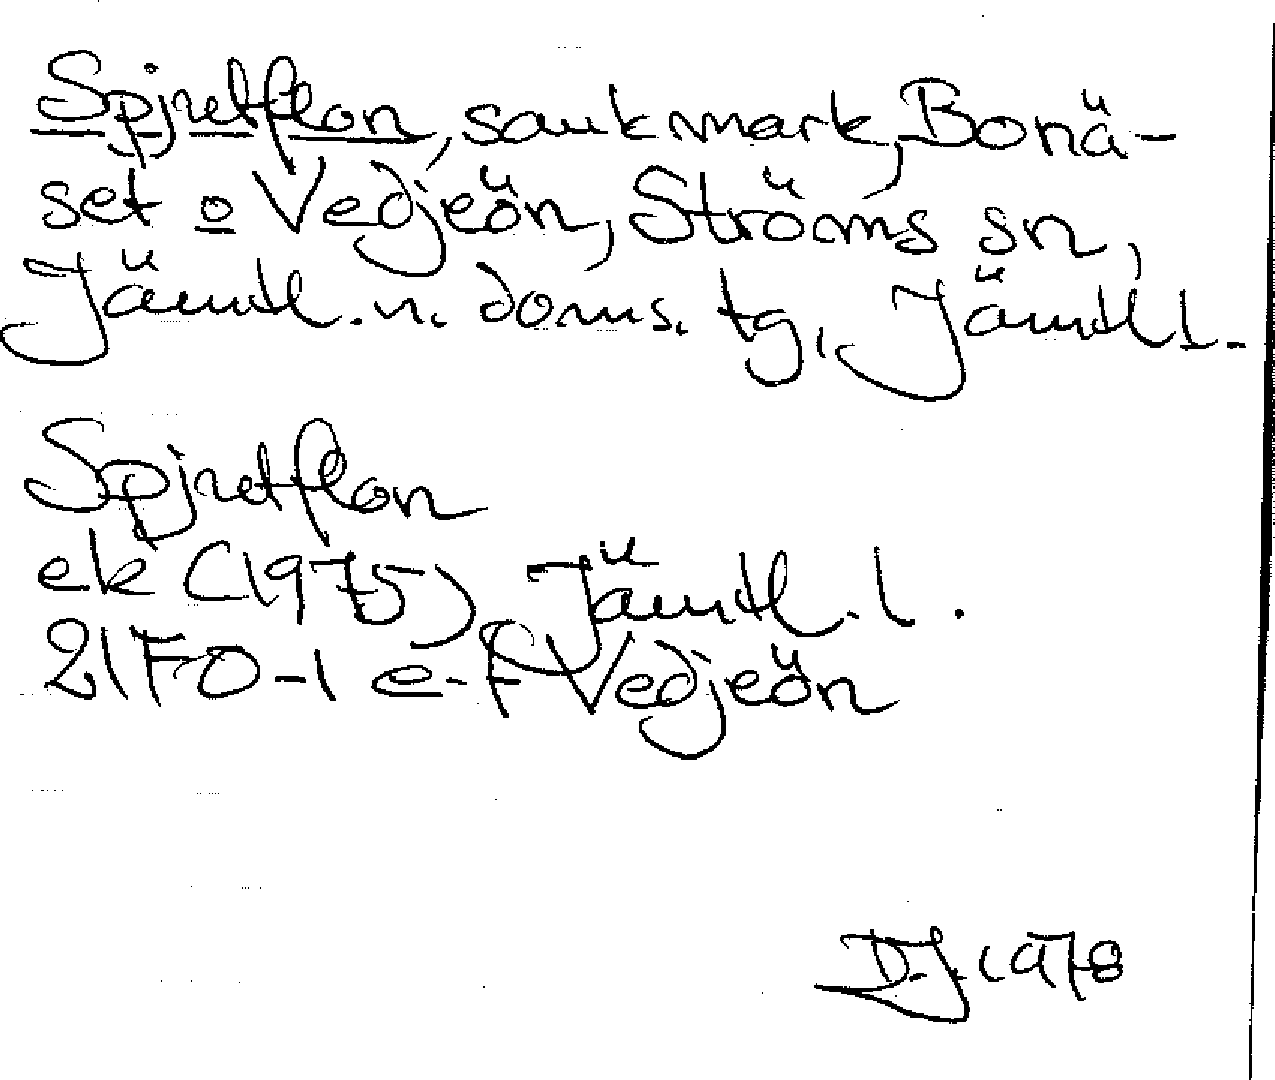 Spjretflon, sankmark, Bonä-
set o Vedjeön, Ströms sn,
Jämtl. n. doms. tg, Jämtl l.
Spjretflon
ek (1975) Jämtl. l.
21F0-1 e-f Vedjeön
D.J. 1978